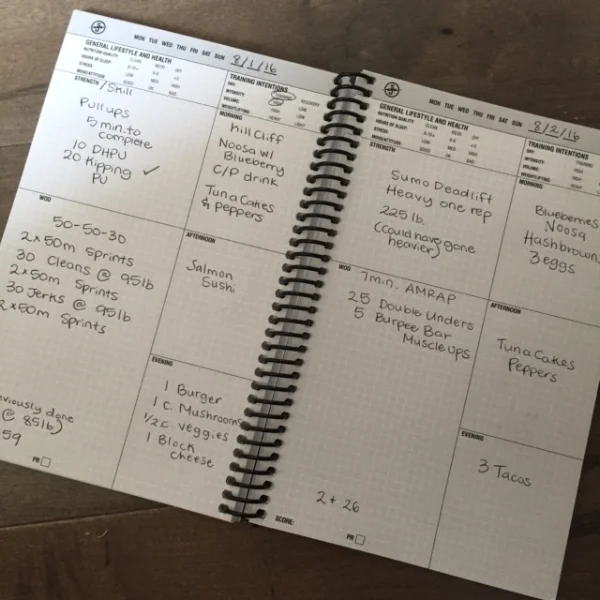 MON TUE WED THU FRI SAT SUN 8/1/16
GENERAL LIFESTYLE AND HEALTH
NUTRITION QUALITY
HOURS OF SLEEP
STRESS
WOD ATTITUDE
STRENGTH /Skill
Pullups
5 min. to
complete
10 DHPU
20 Kipping ✓
PU
WOD
50-50-30
2x50m Sprints
30 Cleans @ 95lb
2x50m Sprints
30 Jerks @ 95lb
2x50m Sprints
viously done
@ 85lb)
59
PR
TRAINING INTENTIONS
DAY:
INTENSITY:
VOLUME:
WEIGHTLIFTING:
MORNING
Kill Cliff
Noosa w/
Blueberry
C/P drink
Tuna Cakes
& peppers
AFTERNOON
Salmon
Sushi
EVENING
1 Burger
1 C. Mushrooms
1/2 c. veggies
1 Block
cheese
MON TUE WED THU FRI SAT SUN 8/2/16
GENERAL LIFESTYLE AND HEALTH
NUTRITION QUALITY
HOURS OF SLEEP
STRESS
WOD ATTITUDE
STRENGTH
Sumo Deadlift
Heavy one rep
225 lb.
(could have gone
heavier)
WOD
7min. AMRAP
25 Double Unders
5 Burpee Bar
Muscleups
2 + 26
SCORE:
PR
TRAINING INTENTIONS
DAY:
INTENSITY:
VOLUME:
WEIGHTLIFTING:
MORNING
Blueberries
Noosa
Hashbrown
3 eggs
AFTERNOON
Tuna Cakes
Peppers
EVENING
3 Tacos